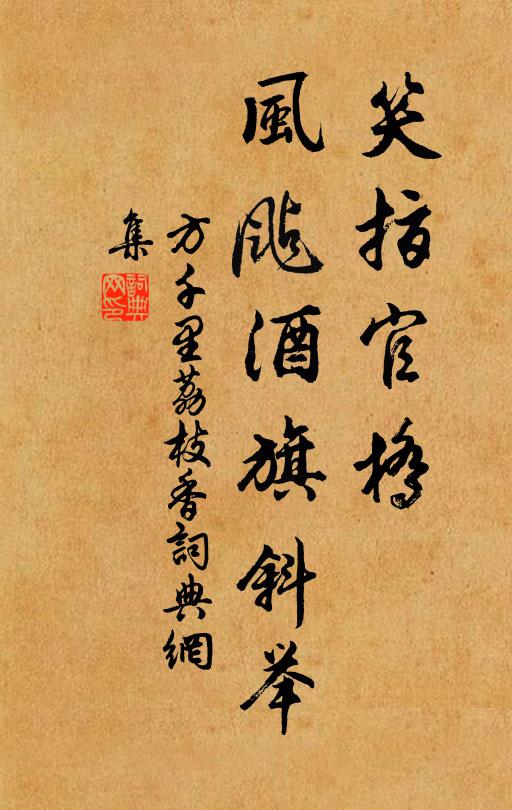 笑指官橋
風颭酒旗斜举
方千里荔枝香詞典網
集
詞典網印